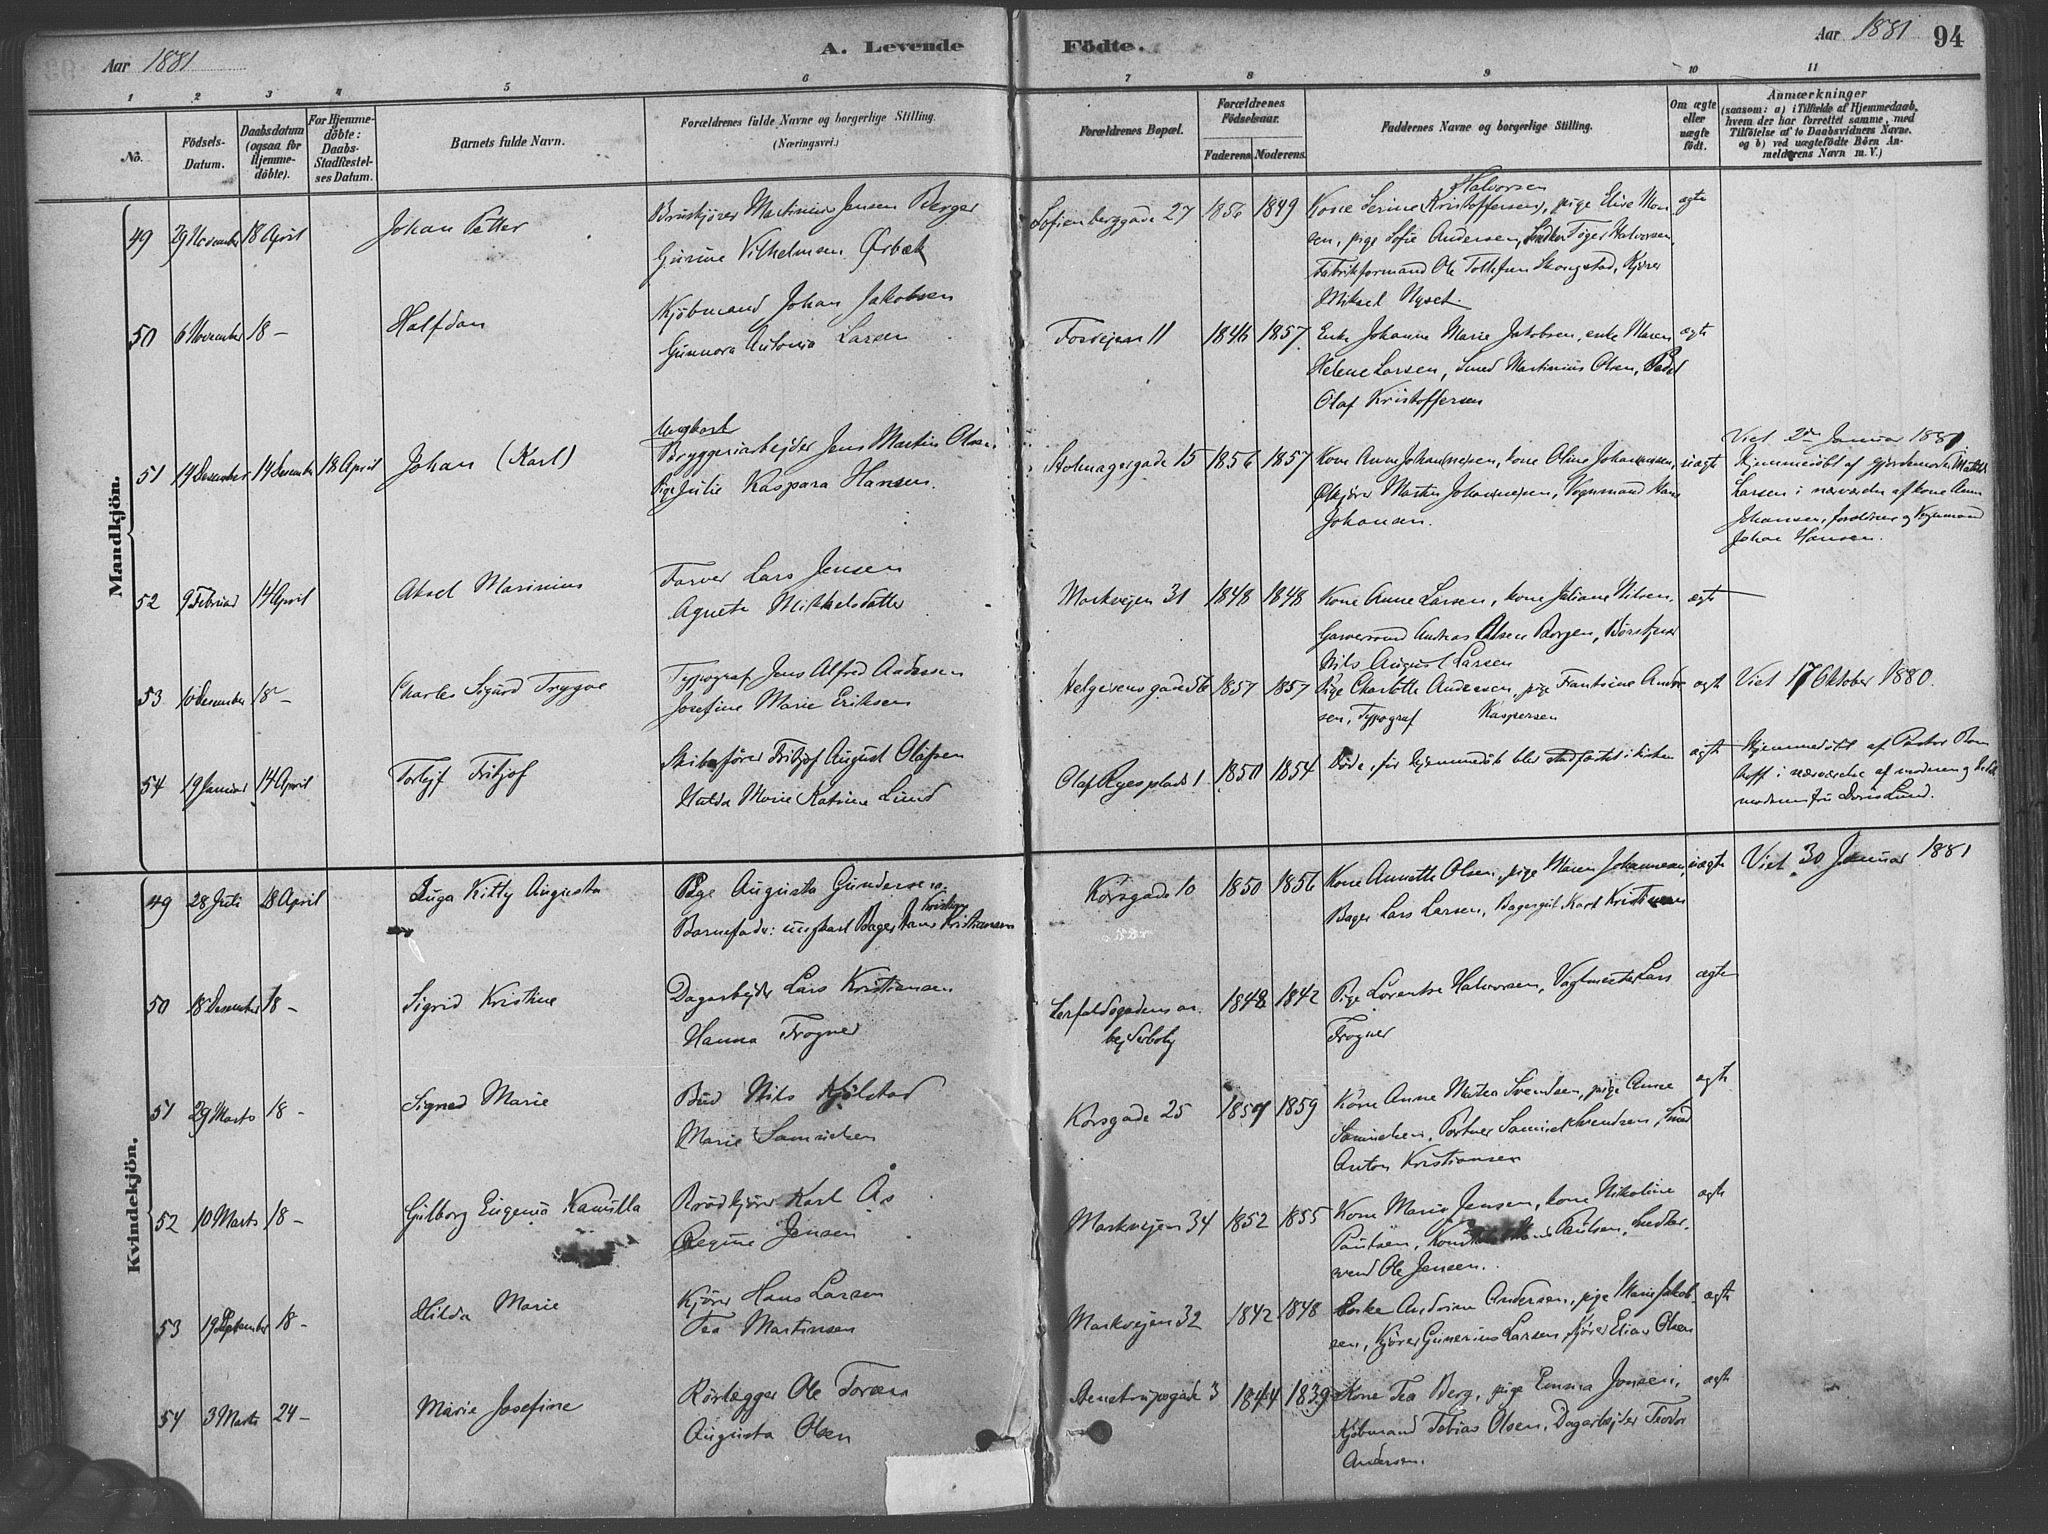 Aar 1881
A. Levende
Födte.
Aar 1881
94
1
2
3
4
5
6
7
8
9
10
11
No.
Födsels-
Datum.
Daabsdatum
(ogsaa for
Hjemme-
döbte).
For Hjemme-
döbte:
Daabs-
Stadfæstel-
ses Datum.
Barnets fulde Navn.
Forældrenes fulde Navne og borgerlige Stilling.
(Næringsvei.)
Forældrenes Bopæl.
Forældrenes
Födselsaar.
Faderens.
Moderens.
Faddernes Navne og borgerlige Stilling.
Om ægte
eller
uægte
födt.
Anmærkninger
(saasom: a) i Tilfælde af Hjemmedaab,
hvem der har forrettet samme, med
Tilföielse af to Daabsvidners Navne.
og b) ved uægtefödte Börn An-
melderens Navn m. V.)
Mandkjön.
49 29 November 18 April
Johan Petter
Martinius Jensen Berger
Gurine Vilhelmsen Ørbæk
Sofienberggade 27 1856 1849
Halvorsen
Kone Serine Kristoffersen, pige Elise Han-
sen, pige Sofie Andersen, Halvorsen,
Fabrikformand Ole Tollefsen Skongstad, Kjører
Mikael Nyset.
ægte
50 6 November 18 –
Halfdan
Kjøbmand Johan Jakobsen
Gunnora Antonia Larsen
Fosvejen 11 1846 1857
Enke Johanne Marie Jakobsen, enke Maren
Helene Larsen, Smed Martinius Olsen,
Olaf Kristoffersen
ægte
51 14 Desember 14 Desember 18 April
Johan (Karl)
Ungkarl
Bryggeriarbejder Jens Martin Olsen
Pige Julie Kaspara Hansen.
15 1856 1857
Kone Anne Johannesen, kone Oline Johannesen,
Martin Johannesen, Vognmand Hans
Johansen.
uægte
Viet 2den Januar 1881
Hjemmedøbt af gjordemor
Larsen i nærværelse af kone Anne
Johansen, forældrene og Vognmand
Johan Hansen.
52 9 Februar 14 April
Aksel Marinius
Farver Lars Jensen
Agnete Mikkelsdatter
Markvejen 31 1848 1848
Kone Anne Larsen, kone Juliane Nilsen,
Garversvend Andreas Olsen Borgen,
Nils August Larsen
ægte
53 10 Desember 18 –
Charles Sigurd Trygve
Typograf Jens Alfred Andersen
Josefine Marie Eriksen
Helgesensgade 56 1857 1857
Pige Charlotte Andersen, pige Frantsine Ander-
sen, Typograf Kaspersen
ægte
Viet 17 Oktober 1880.
54 19 Januar 14 April
Torlejf Fritjof
Skibsfører Fritjof August Olafsen
Halda Marie Katrine Lund
Olaf Ryes plads 1 1850 1854
Døde, før Hjemmedåb blev stadfæstet i kirken
ægte
Hjemmedøbt af Pastor
i nærværelse af moderen og
moderen fru Doris Lund.
Kvindekjön.
49 28 Juli 18 April
Inga Kitty Augusta
Pige Augusta Gundersen.
Barnefader: ungkarl Bager Hans Kristiansen
Korsgade 10 1850 1856
Kone Annette Olsen, pige Maren Johannesen,
Bager Lars Larsen, Bagersvend Karl Kristiansen
uægte
Viet 30 Januar 1881
50 18 Desember 18 –
Sigrid Kristine
Dagarbejder Lars Kristiansen
Hanna Frogner
1848 1842
Pige Lorentse Halvorsen, Vagtmester Lars
Frogner
ægte
51 29 Marts 18 –
Signed Marie
Bud Nils Kjølstad
Marie Samuelsen
Korsgade 25 1857 1859
Kone Anne Matea Svendsen, pige Anne
Samuelsen, Portner Samuel Svendsen, Smed
Anton Kristiansen
ægte
52 10 Marts 18 –
Gulborg Eugenia Kamilla
Brødkjører Karl Ås
Regine Jensen
Markvejen 34 1852 1855
Kone Marie Jensen, kone Nikoline
Paulsen, Paulsen, Snedker-
svend Ole Jensen.
ægte
53 19 September 18 –
Hilda Marie
Kjører Hans Larsen
Tea Martinsen
Markvejen 32 1842 1848
Enke Andrine Andersen, pige Marie Jakob-
sen, Kjører Gunerius Larsen, Kjører Elias Olsen
ægte
54 3 Marts 24 –
Marie Josefine
Rørlægger Ole Toresen
Augusta Olsen
Stenstrupsgade 3 1844 1839
Kone Tea Berg, pige Emma Jonsen,
Kjøbmand Tobias Olsen, Dagarbejder Teodor
Andersen.
ægte